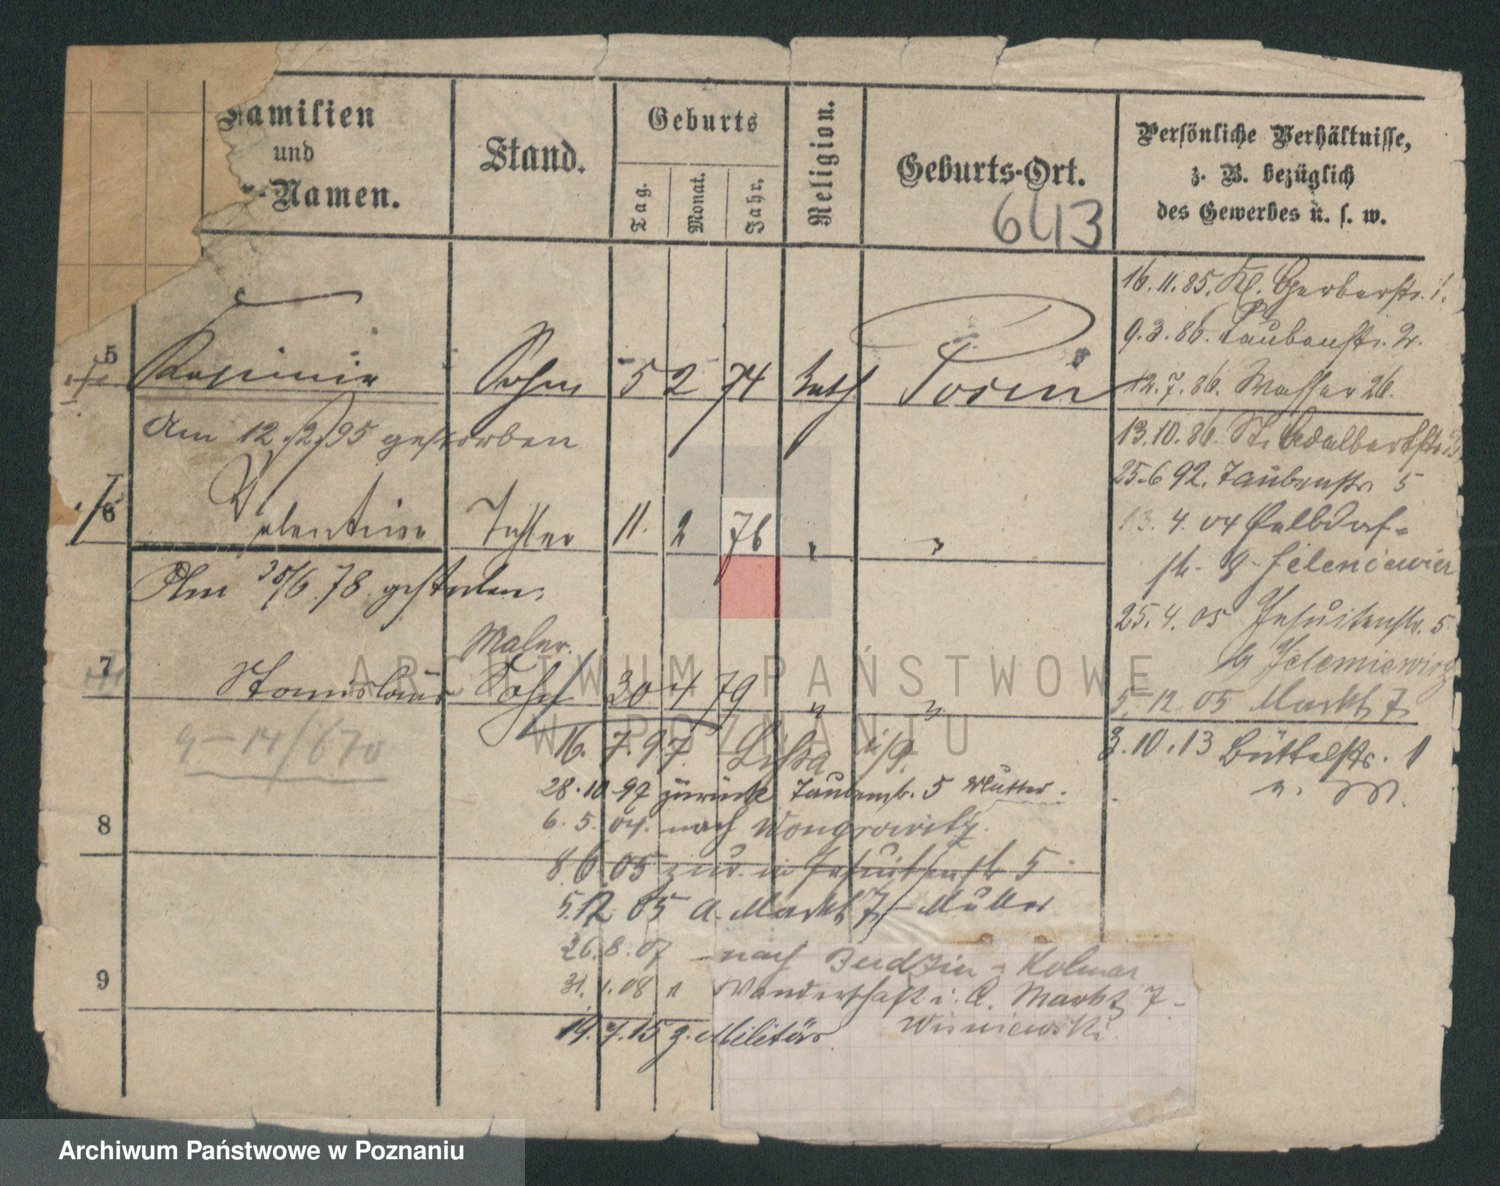 Familien
und
-Namen.
Stand.
Geburts
Tag.
Monat.
Jahr.
Religion.
Geburts-Ort.
643
Persönliche Verhältnisse,
z. B. bezüglich
des Gewerbes u. s. w.
16.11.85. Kl. Gerberstr. 1.
9.3.86. Taubenstr. 2.
12.7.86. Wasser 26.
13.10.86. St. Adalbertstr.
25.6.92. Taubenstr. 5
13.4.04
25.4.05 Jesuitenstr. 5
5.12.05 Markt 7
3.10.13 Büttelstr. 1
5 Kasimir Sohn 5 2 74 kath Posen
Am 12.2.95 gestorben
6 Valentine Tochter 11. 2 76 " "
Am 30/6.78. gestorben.
Maler.
7 Stanislaus Sohn 30 4 79 " "
9-14/670
16.7.97. Lissa i/P.
28.10.97 zurück Taubenstr. 5 Mutter.
6.5.04. nach Wongrowitz.
8
8.6.05 zur. in Jesuitenstr 5
5.12.05 A. Markt 7 Mutter
26.8.07 nach Budzin - Kolmar
9
31.1.08 v Wanderschaft i. A. Markt 7-
Wisniewski
14.7.15 z. Militär
ARCHIWUM PAŃSTWOWE
W POZNANIU
Archiwum Państwowe w Poznaniu